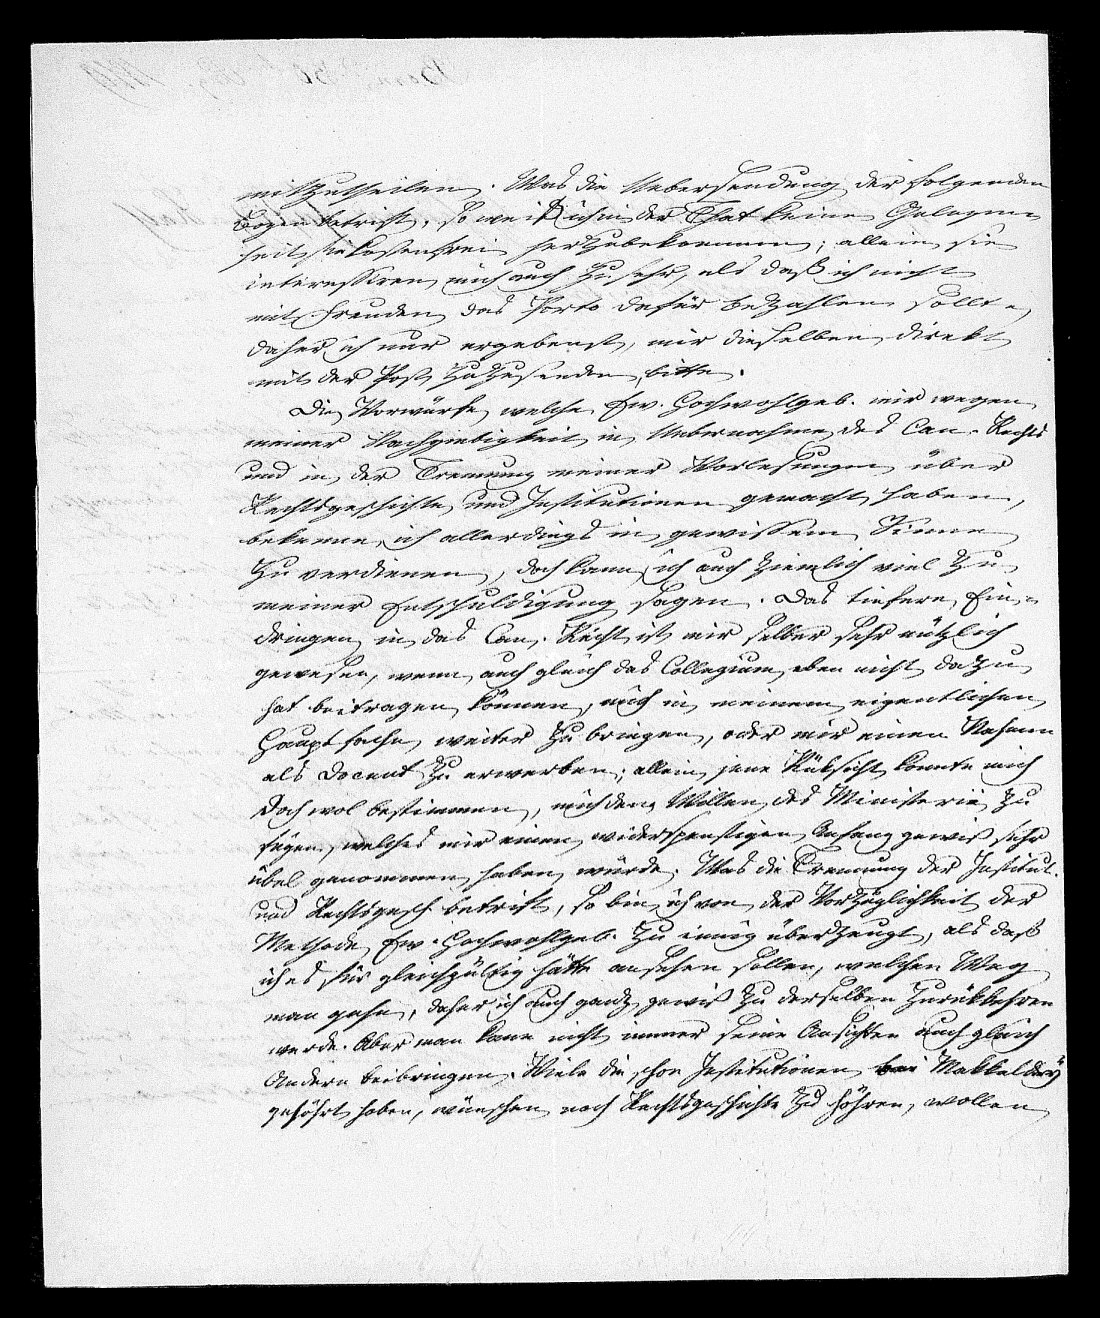 mitzutheilen. Was die Uebersendung der folgenden
Bogen betrift, so weiß ich in der That keine Gelegen-
heit sie kostenfrei herzubekommen; allein sie
interessiren mich auch zu sehr, als daß ich nicht
mit Freuden das Porto dafür bezahlen sollte,
daher ich nur ergebenst, mir dieselben direkt
mit der Post zuzusenden, bitte.
Die Vorwürfe, welche Ew. Hochwohlgeb. mir wegen
meiner Nachgiebigkeit in Uebernahme des Can. Rechts
und in der Trennung meiner Vorlesungen über
Rechtsgeschichte und Institutionen gemacht haben,
bekenne ich allerdings in gewissem Sinne
zu verdienen, doch kann ich auch ziemlich viel zu
meiner Entschuldigung sagen. Das tiefere Ein-
dringen in das Can. Recht ist mir selber sehr nützlich
gewesen, wenn auch gleich das Collegium eben nicht dazu
hat beitragen können, mich in meinem eigentlichen
Hauptfache weiter zu bringen, oder mir einen Nahmen
als Docent zu erwerben; allein jene Rüksicht konnte mich
doch wol bestimmen, mich dem Willen des Ministerii zu
fügen, welches mir einen widerspenstigen Anfang gewiß sehr
übel genommen haben würde. Was die Trennung der Institut.
und Rechtsgesch. betrift, so bin ich von der Vorzüglichkeit der
Methode Ew. Hochwohlgeb. zu innig überzeugt, als daß
ich es für gleichgültig hätte ansehen sollen, welchen Weg
man gehe, daher ich auch ganz gewiß zu derselben zurükkehren
werde. Aber man kann nicht immer seine Ansichten auch gleich
Andern beibringen. Viele die schon Institutionen bei Makkeldey
gehört haben, wünschen noch Rechtsgeschichte zu hören, wollen